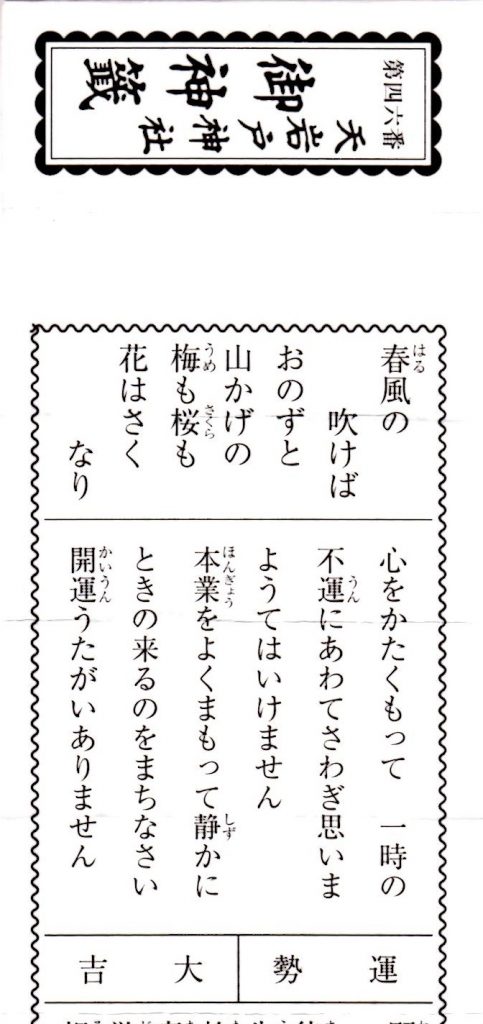 第四六番
天岩戸神社
御神籤
春風の
吹けば
おのずと
山かげの
梅も桜も
花はさく
なり
はる
うめ
さくら
心をかたくもって 一時の
不運にあわてさわぎ思いま
ようてはいけません
本業をよくまもって静かに
ときの来るのをまちなさい
開運うたがいありません
うん
ほんぎょう
しず
かいうん
運勢
大吉